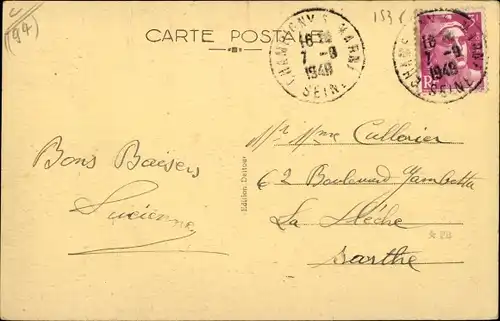 (94)
CARTE POSTALE
CHAMPIGNY S. MARNE
18
7 - 9
1949
SEINE
CHAMPIGNY S. MARNE
18
7 - 9
1949
SEINE
RF
Bons Baisers
Lucienne
Edition Deitous
Mr Mme Cullerier
62 Boulevard Gambetta
La Flèche
Sarthe